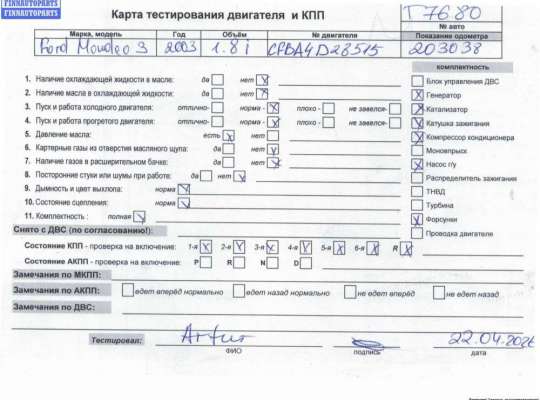 FINNAUTOPARTS
FINNAUTOPARTS
Карта тестирования двигателя и КПП
T7680
№ авто
Марка, модель Год Объём № двигателя Показание одометра
Ford Mondeo 3 2003 1.8i CFBA4D28515 203038
комплектность
1. Наличие охлаждающей жидкости в масле: да нет x
2. Наличие масла в охлаждающей жидкости: да нет x
3. Пуск и работа холодного двигателя: отлично- норма - x плохо - не завелся-
4. Пуск и работа прогретого двигателя: отлично- норма - x плохо - не завелся-
5. Давление масла: есть x нет
6. Картерные газы из отверстия масляного щупа: да нет x
7. Наличие газов в расширительном бачке: да нет x
8. Посторонние стуки или шумы при работе: да нет x
9. Дымность и цвет выхлопа: норма x
10. Состояние сцепления: норма x
11. Комплектность : полная x
Блок управления ДВС
x Генератор
x Катализатор
x Катушка зажигания
x Компрессор кондиционера
Моновпрыск
x Насос г/у
Распределитель зажигания
ТНВД
Турбина
x Форсунки
Проводка двигателя
Снято с ДВС (по согласованию!):
Состояние КПП - проверка на включение: 1-я x 2-я x 3-я x 4-я x 5-я x 6-я x R x
Состояние АКПП - проверка на включение: P R N D
Замечания по МКПП:
Замечания по АКПП: едет вперёд нормально едет назад нормально не едет вперёд не едет назад
Замечания по ДВС:
Тестировал: Artur 22.04.2026
ФИО подпись дата